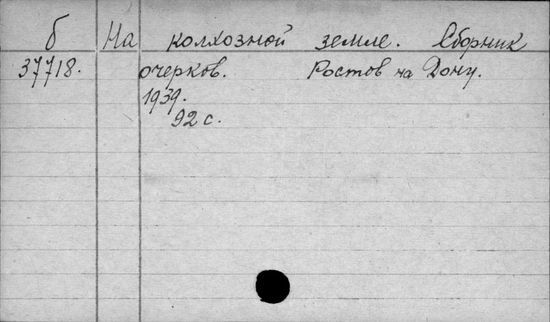 б На колхозной земле. Сборник
37718. очерков. Ростов на Дону.
1939.
92 с.